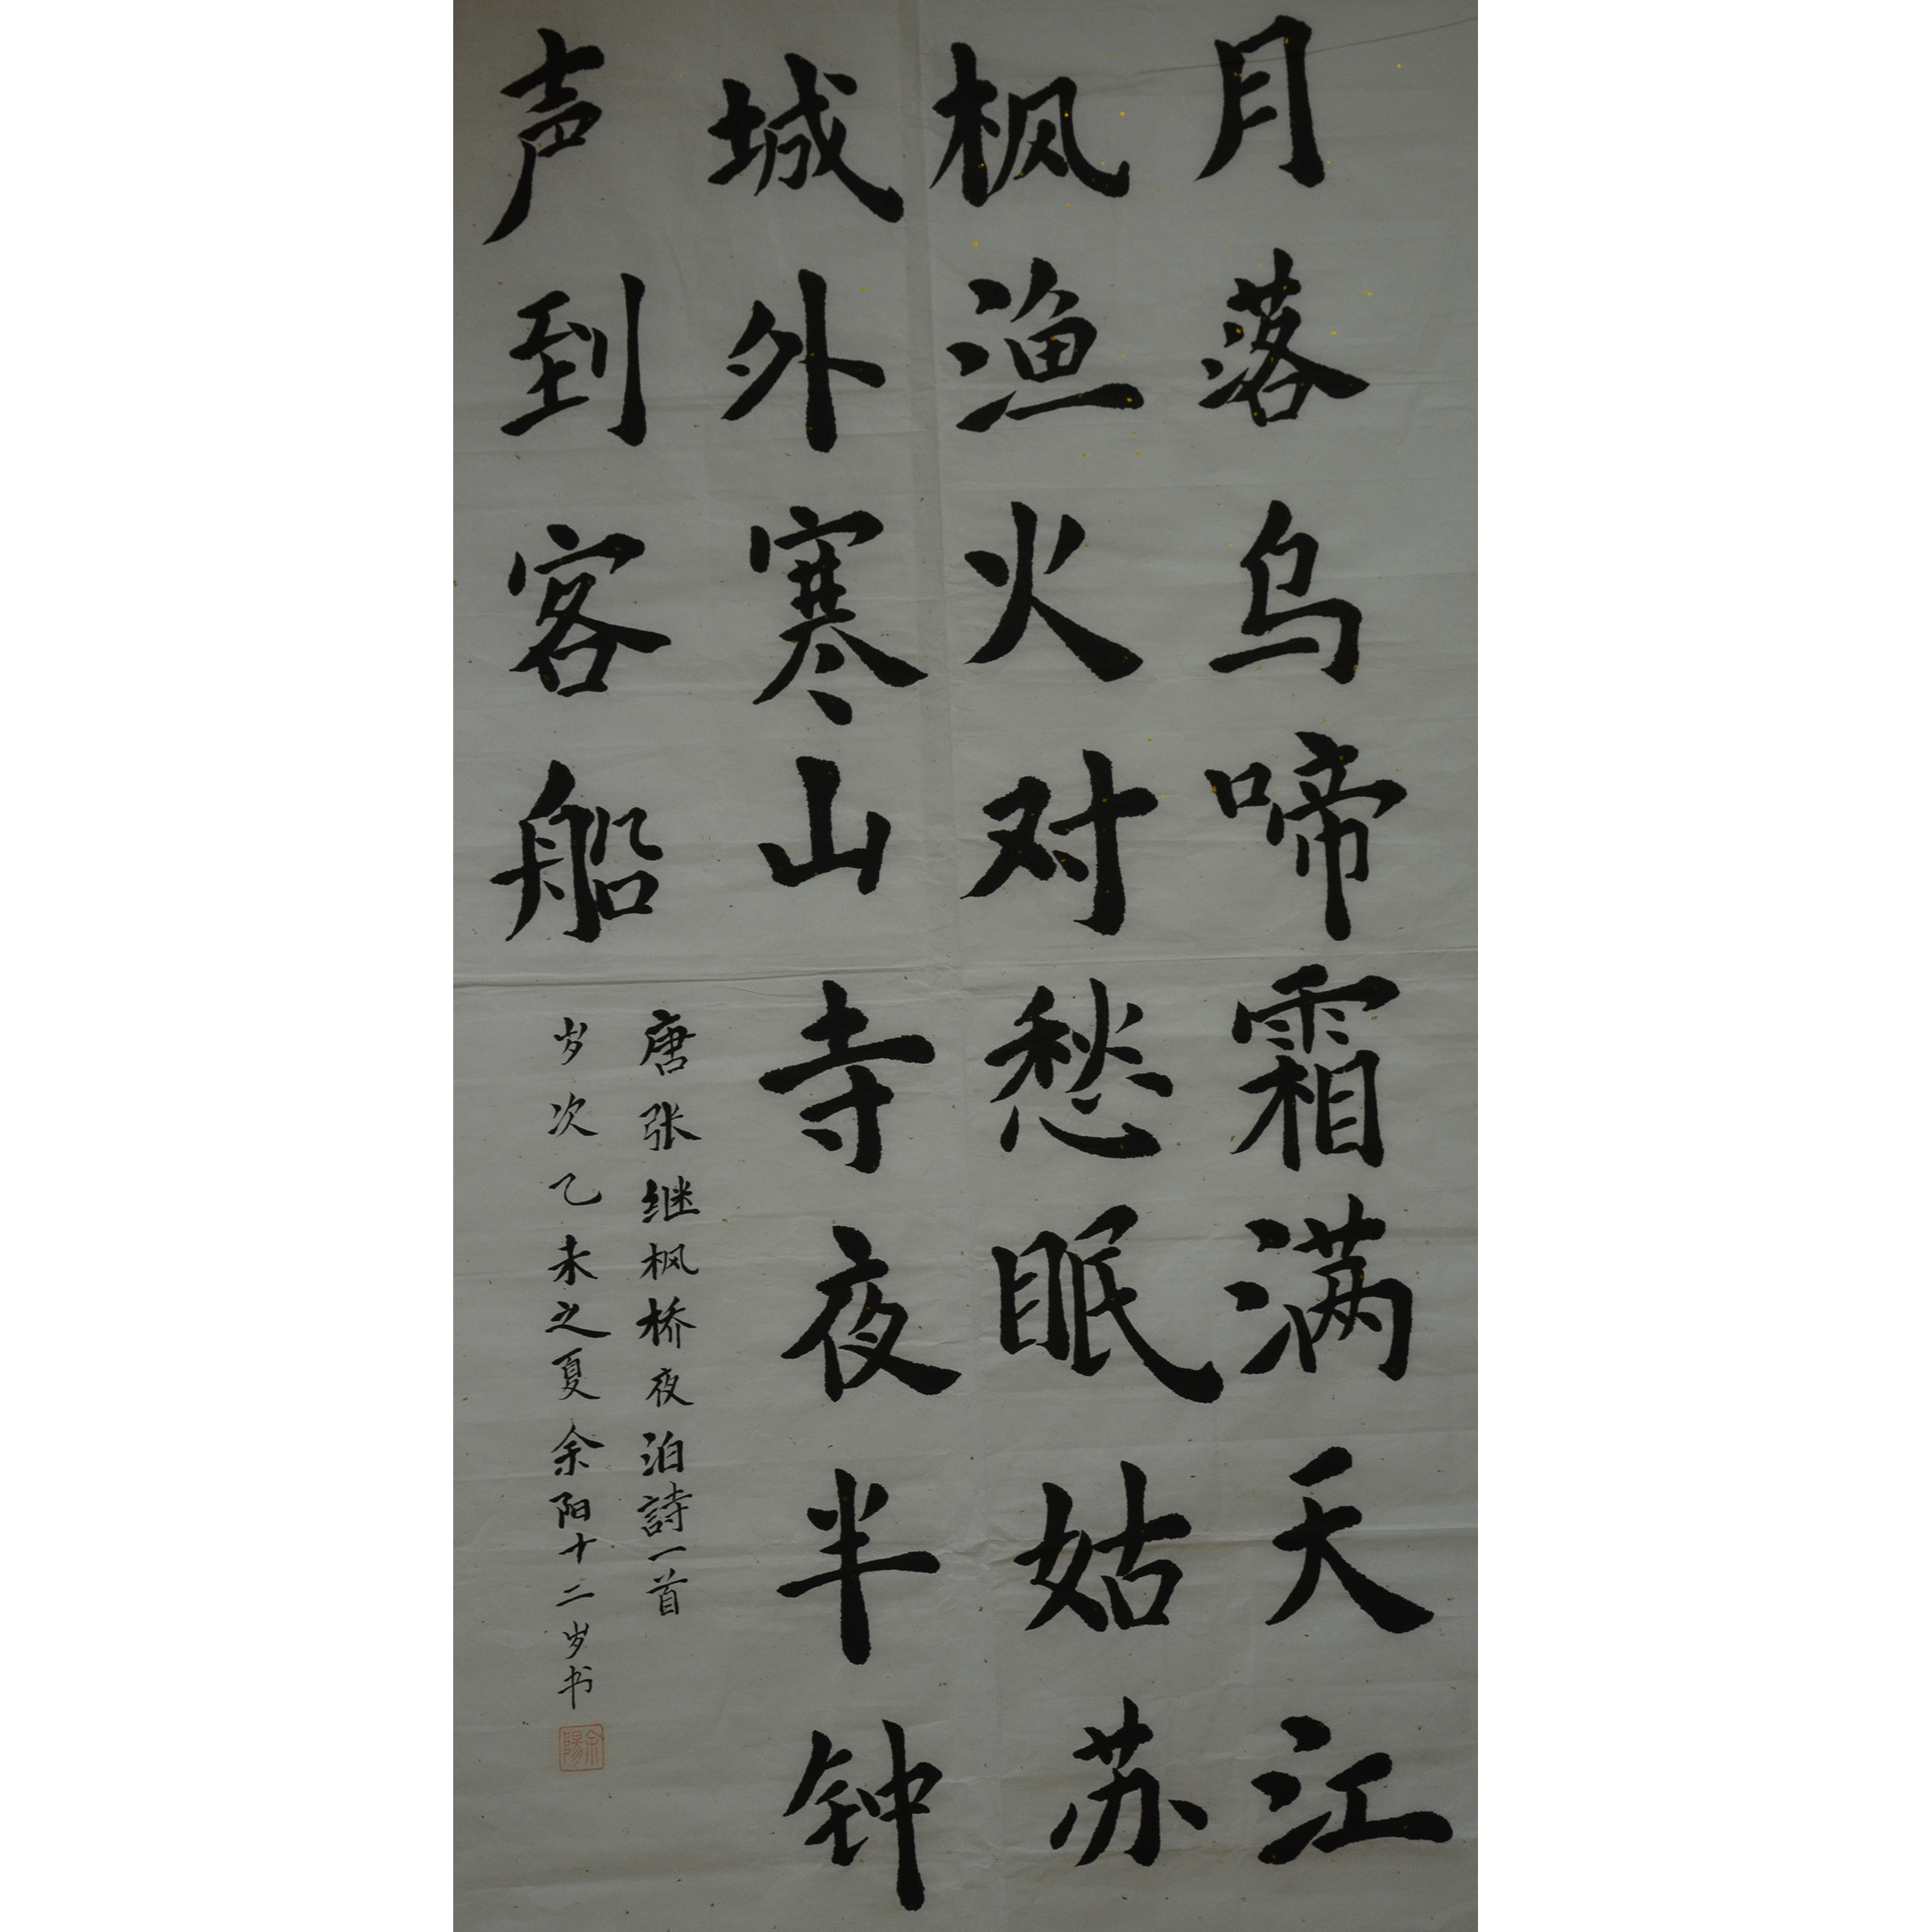 月落乌啼霜满天江
枫渔火对愁眠姑苏
城外寒山寺夜半钟
声到客船
唐张继枫桥夜泊詩一首
岁次乙未之夏余阳十二岁书
余陽